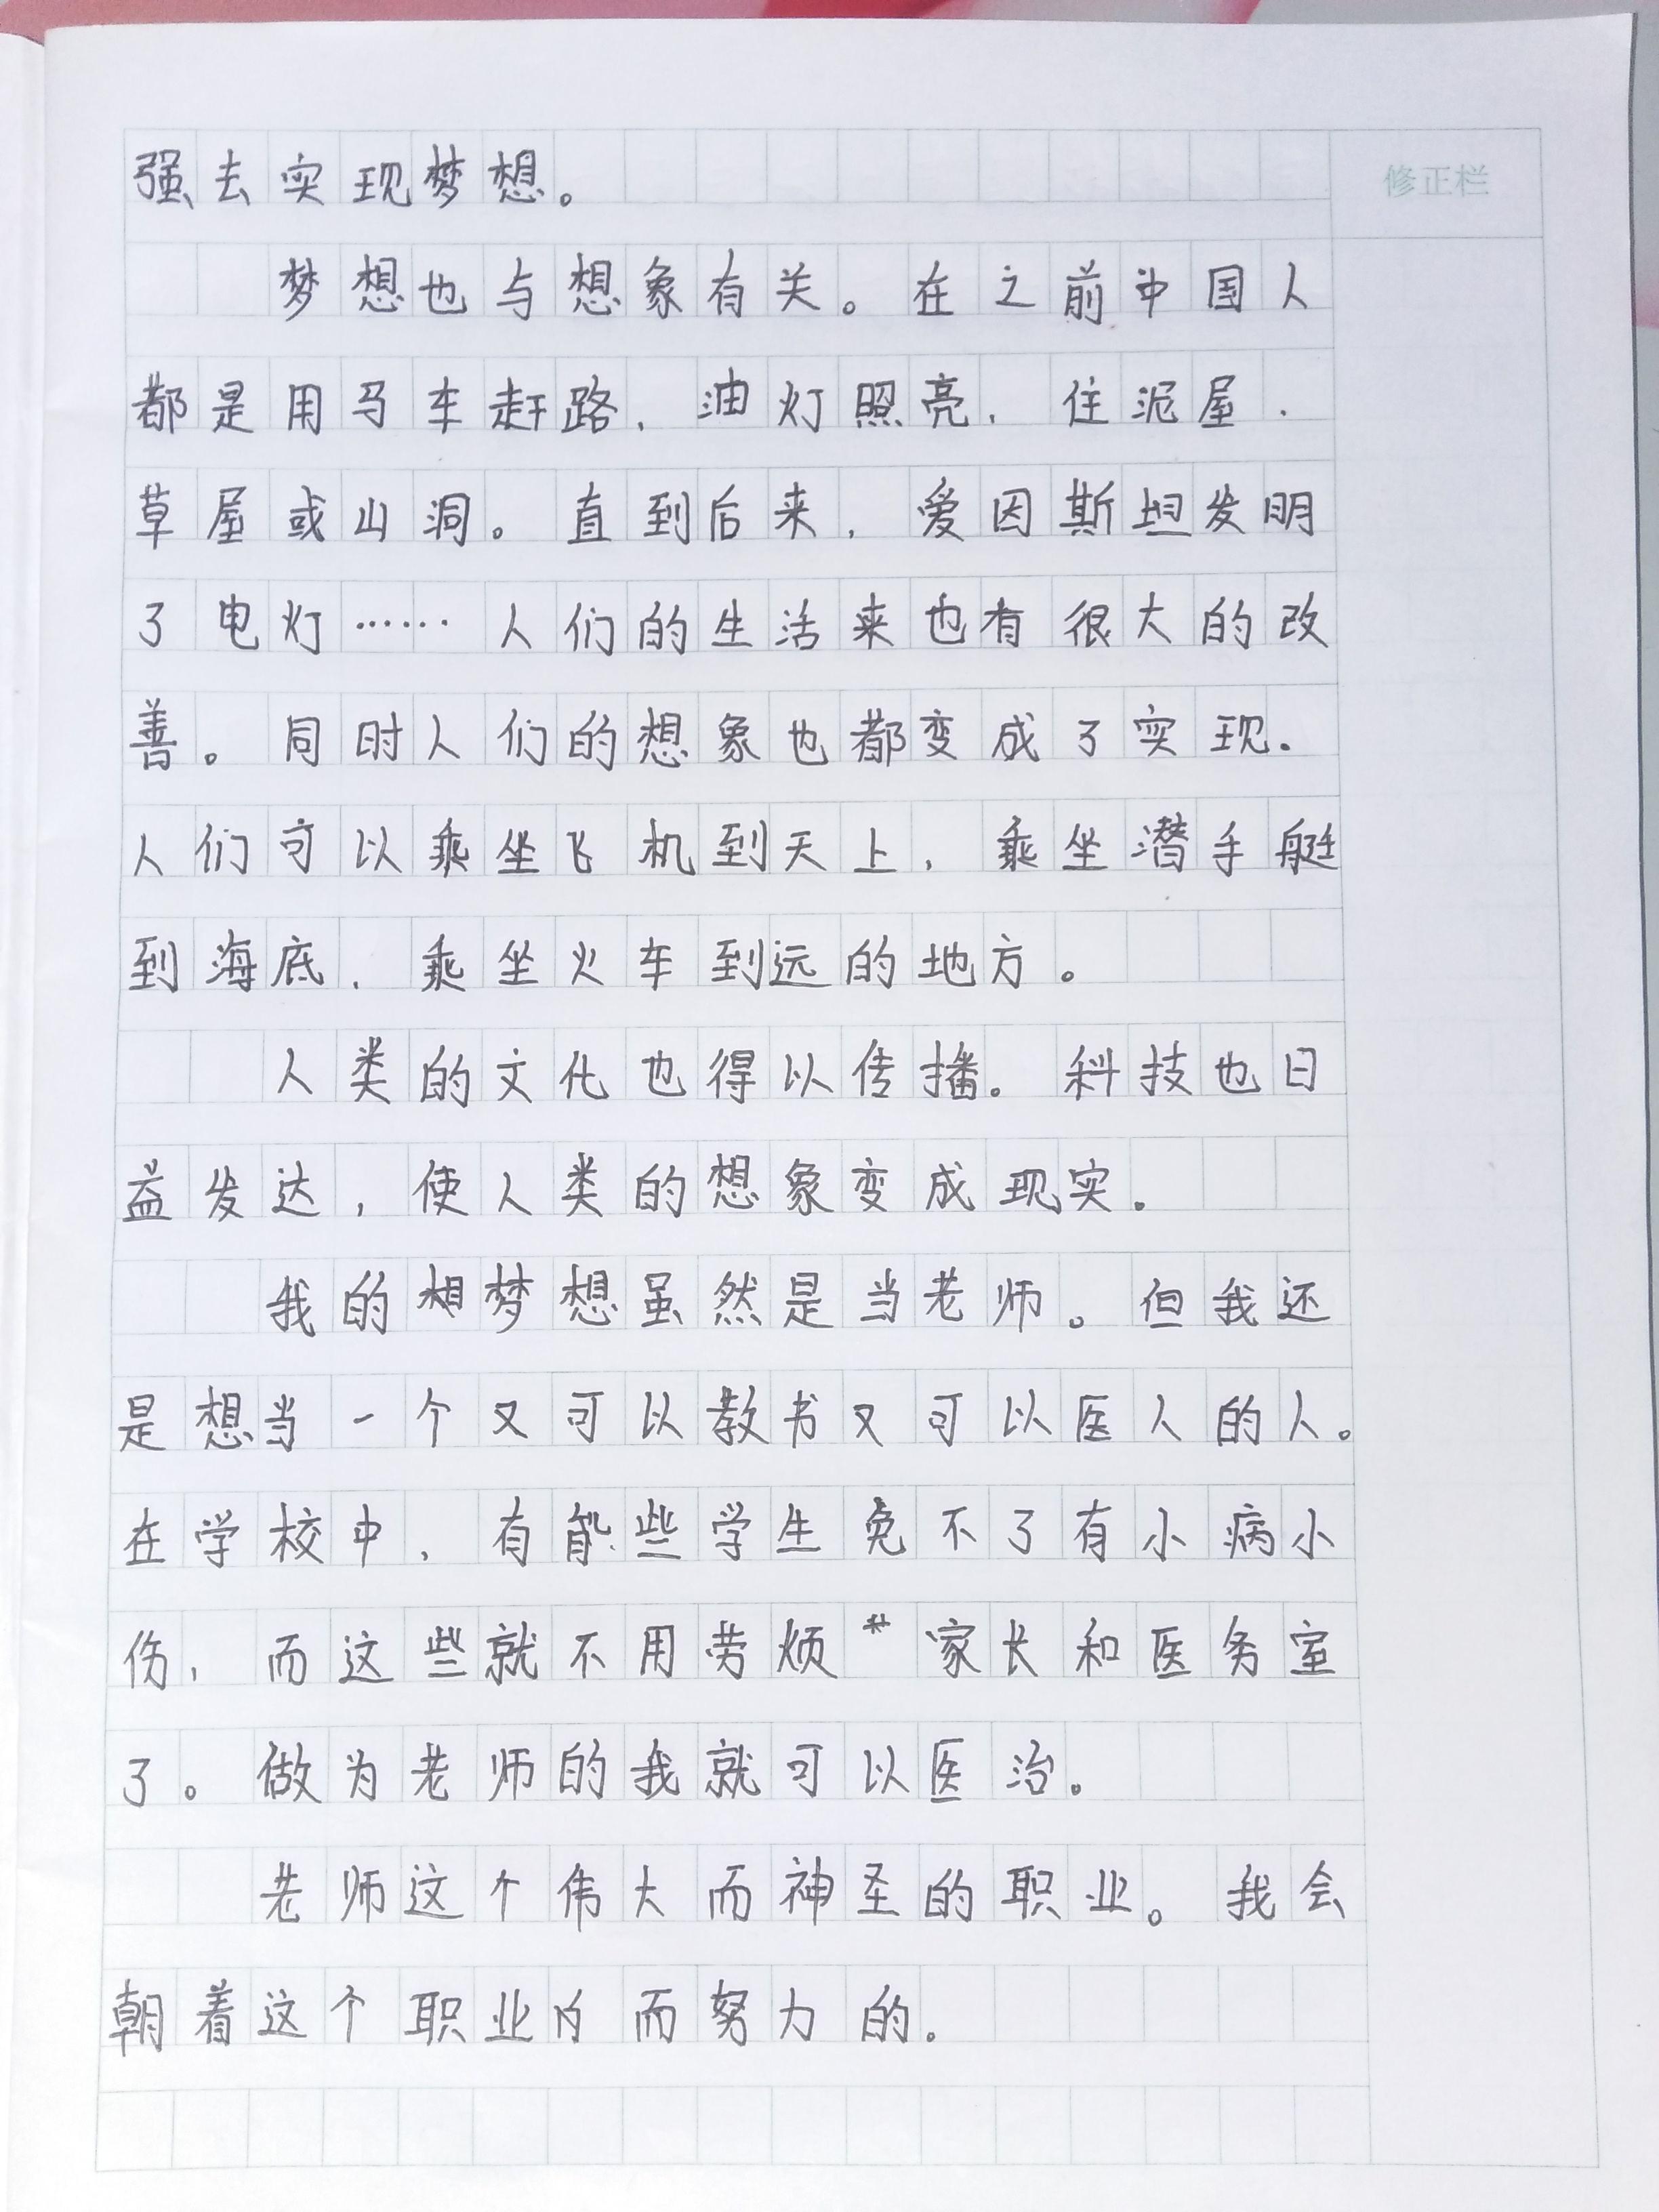 强去实现梦想。
修正栏
梦想也与想象有关。在之前中国人
都是用马车赶路，油灯照亮，住泥屋，
草屋或山洞。直到后来，爱因斯坦发明
了电灯……人们的生活来也有很大的改
善。同时人们的想象也都变成了实现。
人们可以乘坐飞机到天上，乘坐潜手艇
到海底，乘坐火车到远的地方。
人类的文化也得以传播。科技也日
益发达，使人类的想象变成现实。
我的相梦想虽然是当老师。但我还
是想当一个又可以教书又可以医人的人。
在学校中，有能些学生免不了有小病小
伤，而这些就不用劳烦家长和医务室
了。做为老师的我就可以医治。
老师这个伟大而神圣的职业。我会
朝着这个职业而努力的。